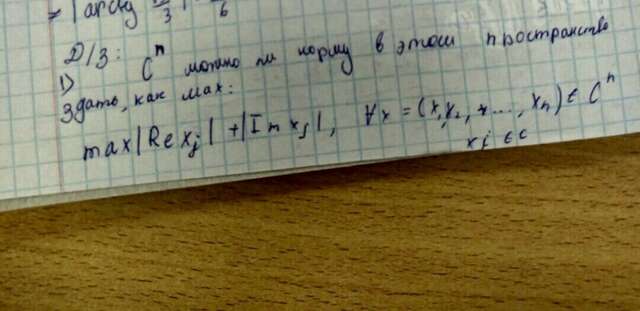 = | arctg
3
6
Д/З:
1) Cⁿ можно ли норму в этом пространстве
Здать, как max:
max|Re xj| + |Im xj|, ∀x = (x, x₂, x..., xn) ∈ Cⁿ
xj ∈ c